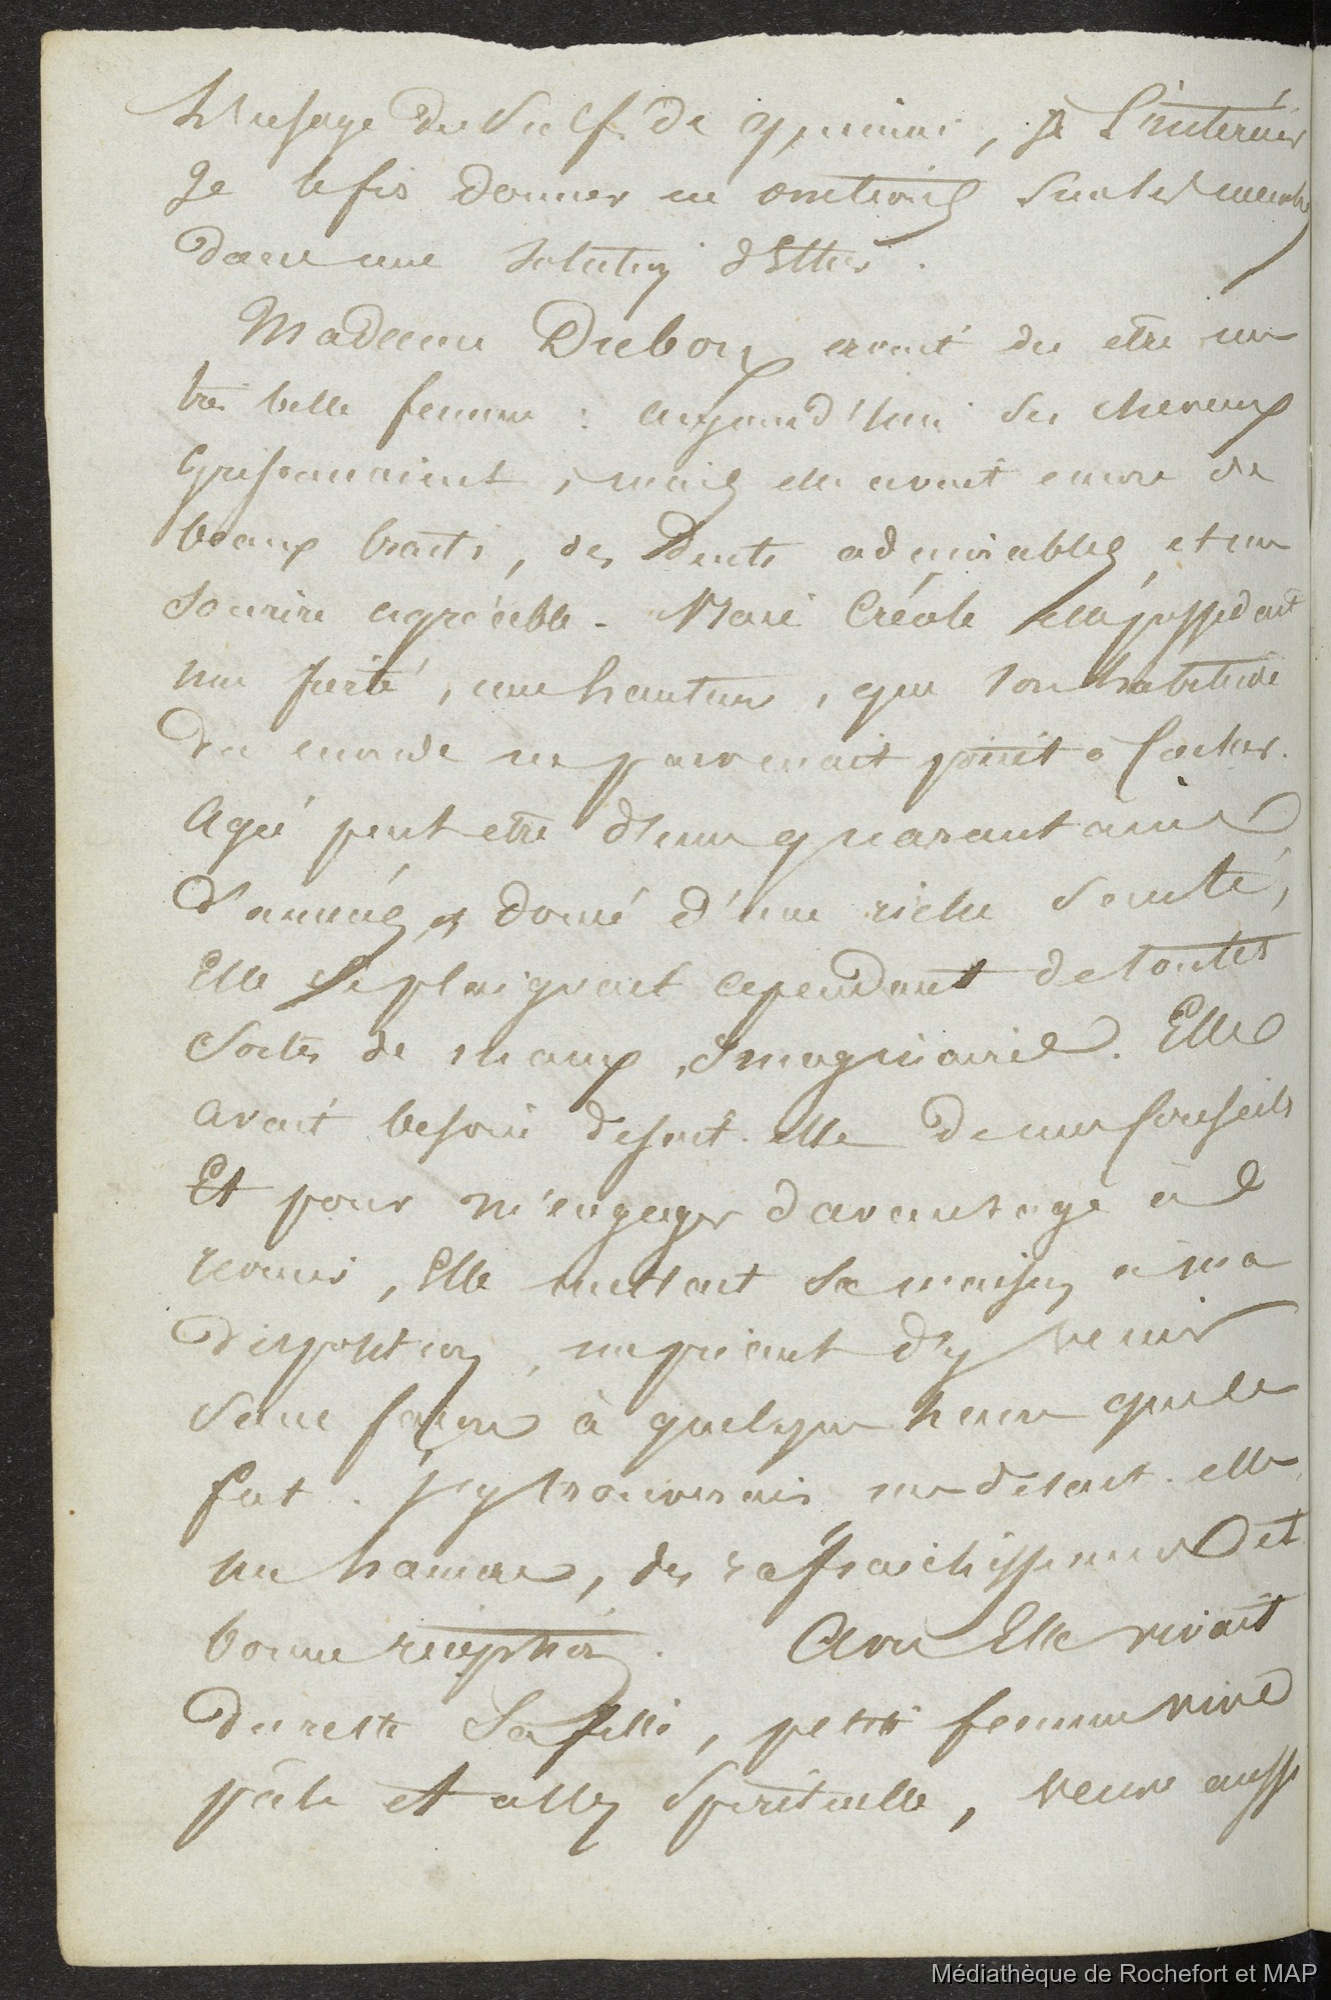 L'usage du Sulf. de quinine, à l'intérieur
Je le fis donner en onctions sur les membres
dans une solution d'Ether.
Madame Dubois avait du etre une
très belle femme : aujourd'hui ses cheveux
grisonnaient, mais elle avait encore de
beaux traits, des Dents admirables et un
Sourire agréable - Mais Créole elle possedait
une fierté, une hauteur, que son habitude
du monde ne parvenait point a cacher.
Agée peut etre d'une quarantaine
d'années, et douée d'une riche Santé,
Elle Se plaignait cependant de toutes
Sortes de maux imaginaires. Elle
avait besoin disait-elle de mes conseils
Et pour m'engager davantage à
revenir, Elle mettait Sa maison a ma
disposition, me priant d'y venir
Sans façon à quelque heure que ce
fut. J'y trouverais me disait-elle
un hamac, des rafraichissemens et
bonne réception. Avec Elle vivait
du reste Sa fille, petite femme vive
pâle et assez Spirituelle, veuve aussi
Médiathèque de Rochefort et MAP